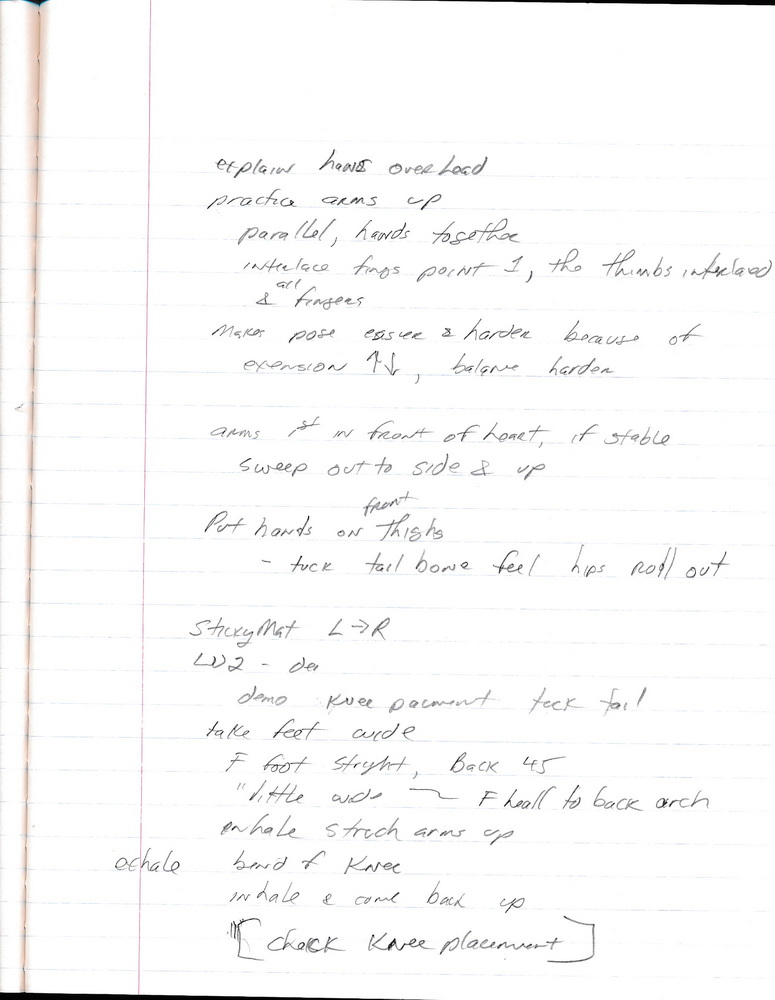 explain hands overhead
practice arms up
parallel, hands together
interlace fings point 1, the thumbs interlaced
& all fingers
makes pose easier & harder because of
exension ↑↓, balance harder
arms 1st in front of heart, if stable
sweep out to side & up
Put hands on front thighs
- tuck tail bone feel hips roll out
StickyMat L→R
W2 - de
demo knee pacment tuck tail
take feet wide
F foot stryht, Back 45
"little wide F heall to back arch
enhale struch arms up
exhale bend f knee
inhale & come back up
[check knee placement]